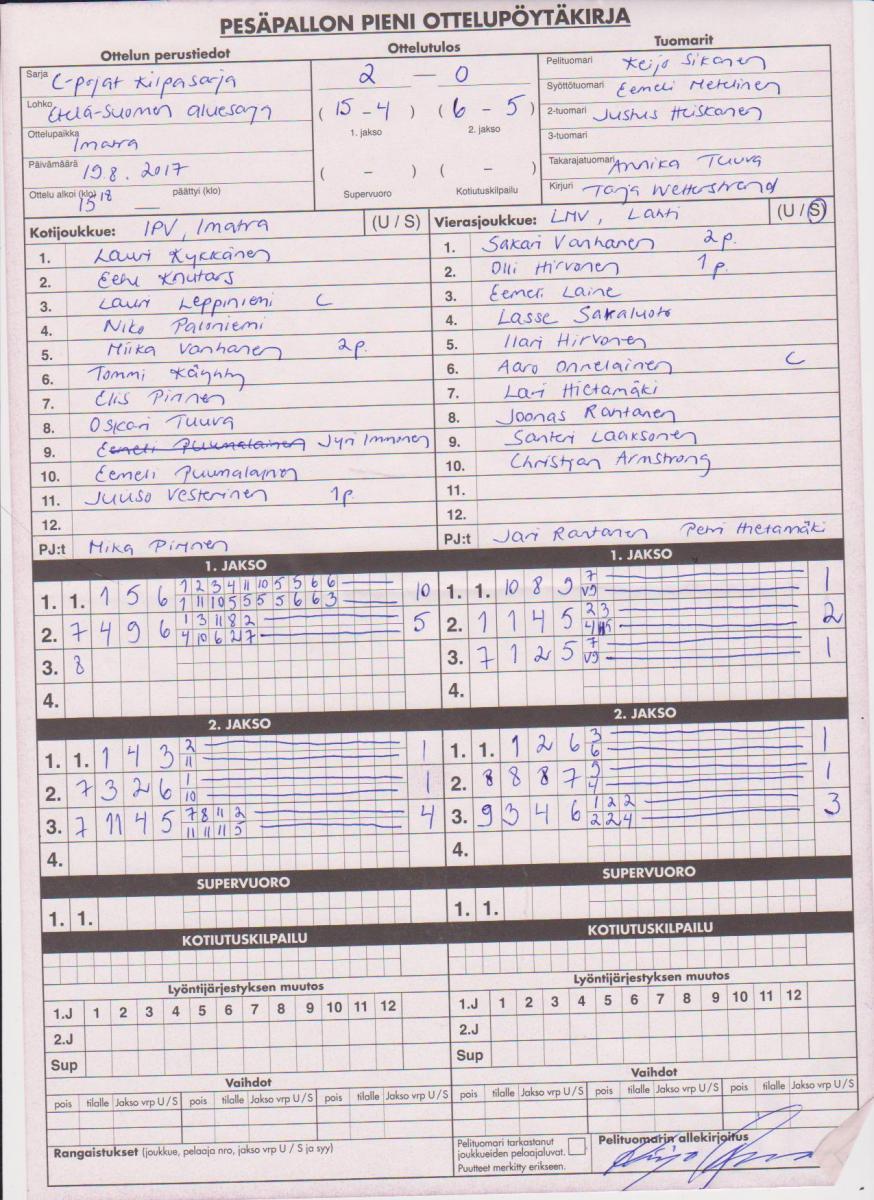 PESÄPALLON PIENI OTTELUPÖYTÄKIRJA
Ottelun perustiedot
Ottelutulos
Tuomarit
Sarja C-pojat Kilpasarja
2 — 0
Pelituomari Keijo Sikanen
Syöttötuomari Eemeli Metelinen
Lohko Etelä-Suomen aluesarja
( 15 - 4 ) ( 6 - 5 )
1. jakso 2. jakso
2-tuomari Justus Heiskanen
Ottelupaikka Imatra
3-tuomari
Päivämäärä 19.8. 2017
( - ) ( - )
Takarajatuomari Annika Tuuva
Ottelu alkoi (klo) 15 18 päättyi (klo) —
Supervuoro Kotiutuskilpailu
Kirjuri Tarja Wetterstrand
Kotijoukkue: IPV, Imatra (U / S)
Vierasjoukkue: LMV, Lahti (U / S)
1. Lauri Kykkänen
2. Eetu Knutars
3. Lauri Leppiniemi C
4. Niko Paloniemi
5. Miika Vanhanen 2p.
6. Tommi Käyhty
7. Elis Pirinen
8. Oskari Tuuva
9. Eemeli Puumalainen Jyri Immonen
10. Eemeli Puumalainen
11. Juuso Vesterinen 1p.
12.
PJ:t Mika Pirinen
1. Sakari Vanhanen 2p.
2. Olli Hirvonen 1p.
3. Eemeli Laine
4. Lasse Sakaluoto
5. Ilari Hirvonen
6. Aaro Onnelainen C
7. Lari Hietamäki
8. Joonas Rantanen
9. Santeri Laaksonen
10. Christjan Armstrong
11.
12.
PJ:t Jari Rantanen Petri Hietamäki
1. JAKSO
1. 1. 1 5 6 1 2 3 4 11 10 5 5 6 6 10
1 11 10 5 5 5 5 6 6 3
2. 7 4 9 6 1 3 11 8 2 5
4 10 6 2 7
3. 8
4.
1. JAKSO
1. 1. 10 8 9 7 1
V9
2. 1 1 4 5 2 3 2
4
3. 7 1 2 5 7 1
V9
4.
2. JAKSO
1. 1. 1 4 3 2 1
11
2. 7 3 2 6 1 1
10
3. 7 11 4 5 7 8 11 2 4
11 11 11 5
4.
2. JAKSO
1. 1. 1 2 6 3 1
6
2. 8 8 8 7 9 1
4
3. 9 3 4 6 1 2 2 3
2 2 4
4.
SUPERVUORO
1. 1.
SUPERVUORO
1. 1.
KOTIUTUSKILPAILU
KOTIUTUSKILPAILU
Lyöntijärjestyksen muutos
1.J 1 2 3 4 5 6 7 8 9 10 11 12
2.J
Sup
Lyöntijärjestyksen muutos
1.J 1 2 3 4 5 6 7 8 9 10 11 12
2.J
Sup
Vaihdot
pois tilalle Jakso vrp U / S pois tilalle Jakso vrp U / S pois tilalle Jakso vrp U / S
Vaihdot
pois tilalle Jakso vrp U / S pois tilalle Jakso vrp U / S pois tilalle Jakso vrp U / S
Rangaistukset (joukkue, pelaaja nro, jakso vrp U / S ja syy)
Pelituomari tarkastanut
joukkueiden pelaajaluvat.
Puutteet merkitty erikseen.
Pelituomarin allekirjoitus